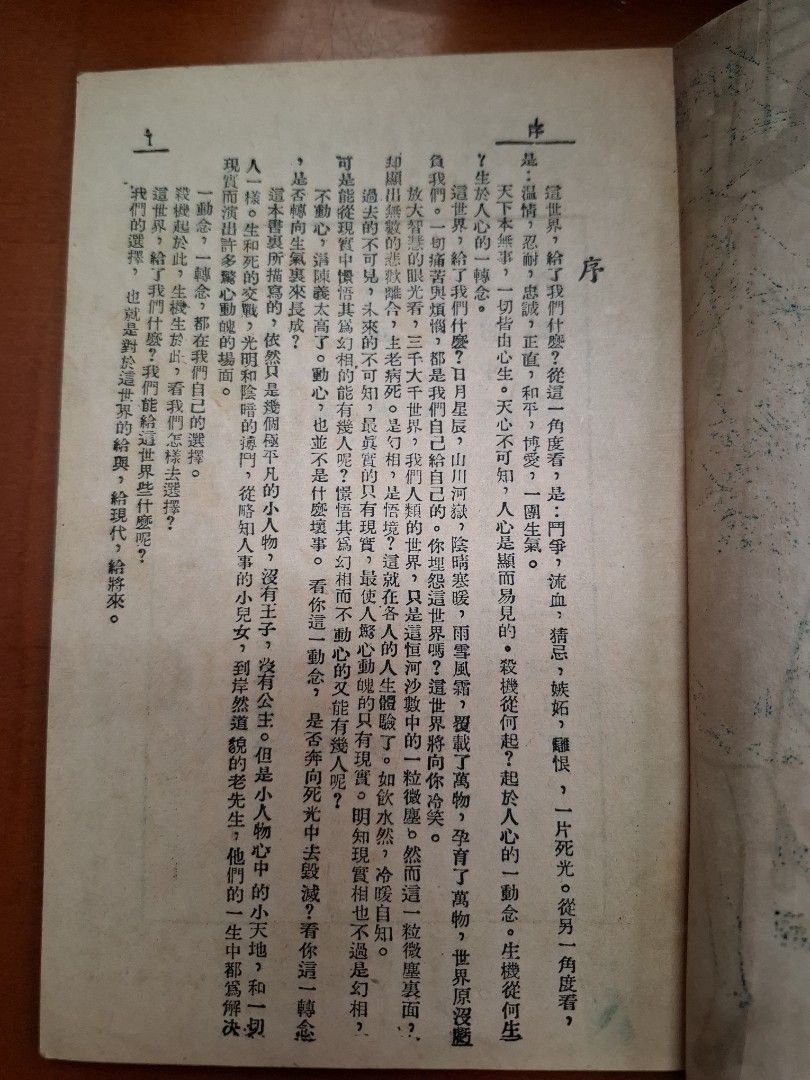 序
序
這世界，給了我們什麼？從這一角度看，是：鬥爭，流血，猜忌，嫉妬，讎恨，一片死光。從另一角度看，
是：温情，忍耐，忠誠，正直，和平，博愛，一團生氣。
天下本無事，一切皆由心生。天心不可知，人心是顯而易見的。殺機從何起？起於人心的一動念。生機從何生
？生於人心的一轉念。
這世界，給了我們什麼？日月星辰，山川河嶽，陰晴寒暖，雨雪風霜，覆載了萬物，孕育了萬物，世界原沒虧
負我們。一切痛苦與煩惱，都是我們自己給自己的。你埋怨這世界嗎？這世界將向你冷笑。
放大智慧的眼光看，三千大千世界，我們人類的世界，只是這恒河沙數中的一粒微塵。然而這一粒微塵裏面，
却顯出無數的悲歡離合，生老病死。是幻相，是悟境？這就在各人的人生體驗了。如飲水然，冷暖自知。
過去的不可見，未來的不可知，最眞實的只有現實，最使人驚心動魄的只有現實。明知現實相也不過是幻相，
可是能從現實中憬悟其爲幻相的能有幾人呢？憬悟其爲幻相而不動心的又能有幾人呢？
不動心，這陳義太高了。動心，也並不是什麼壞事。看你這一動念，是否奔向死光中去毀滅？看你這一轉念
，是否轉向生氣裏來長成？
這本書裏所描寫的，依然只是幾個極平凡的小人物，沒有王子，沒有公主。但是小人物心中的小天地，和一切
人一樣。生和死的交戰，光明和陰暗的搏鬥，從略知人事的小兒女，到岸然道貌的老先生，他們的一生中都爲解决
現實而演出許多驚心動魄的場面。
一動念，一轉念，都在我們自己的選擇。
殺機起於此，生機生於此，看我們怎樣去選擇？
這世界，給了我們什麼？我們能給這世界些什麼呢？
我們的選擇，也就是對於這世界的給與，給現代，給將來。